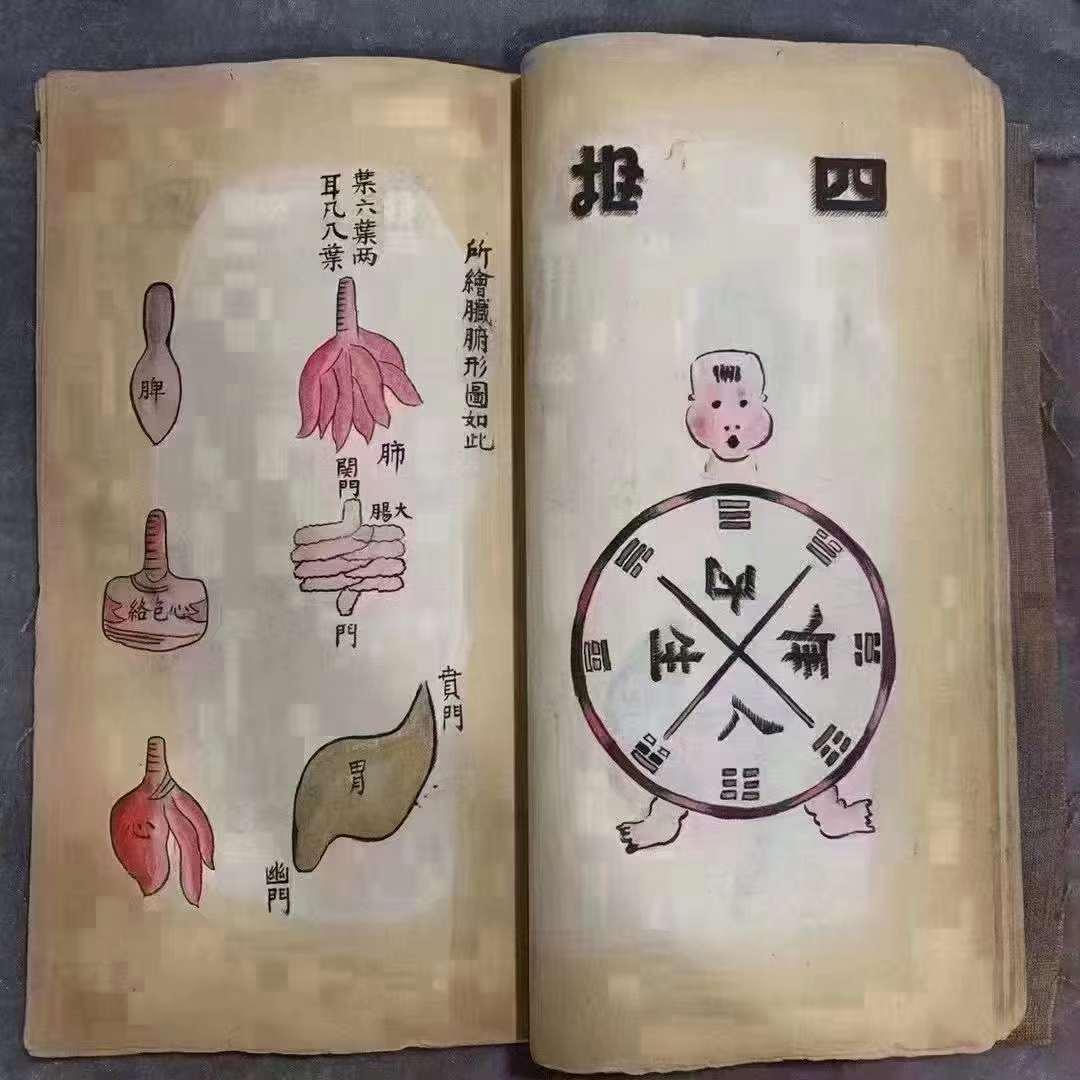 四
生
人
所繪臟腑形圖如此
葉六葉两
耳凡八葉
肺
関門
大腸
門
賁門
胃
幽門
脾
心色絡
心